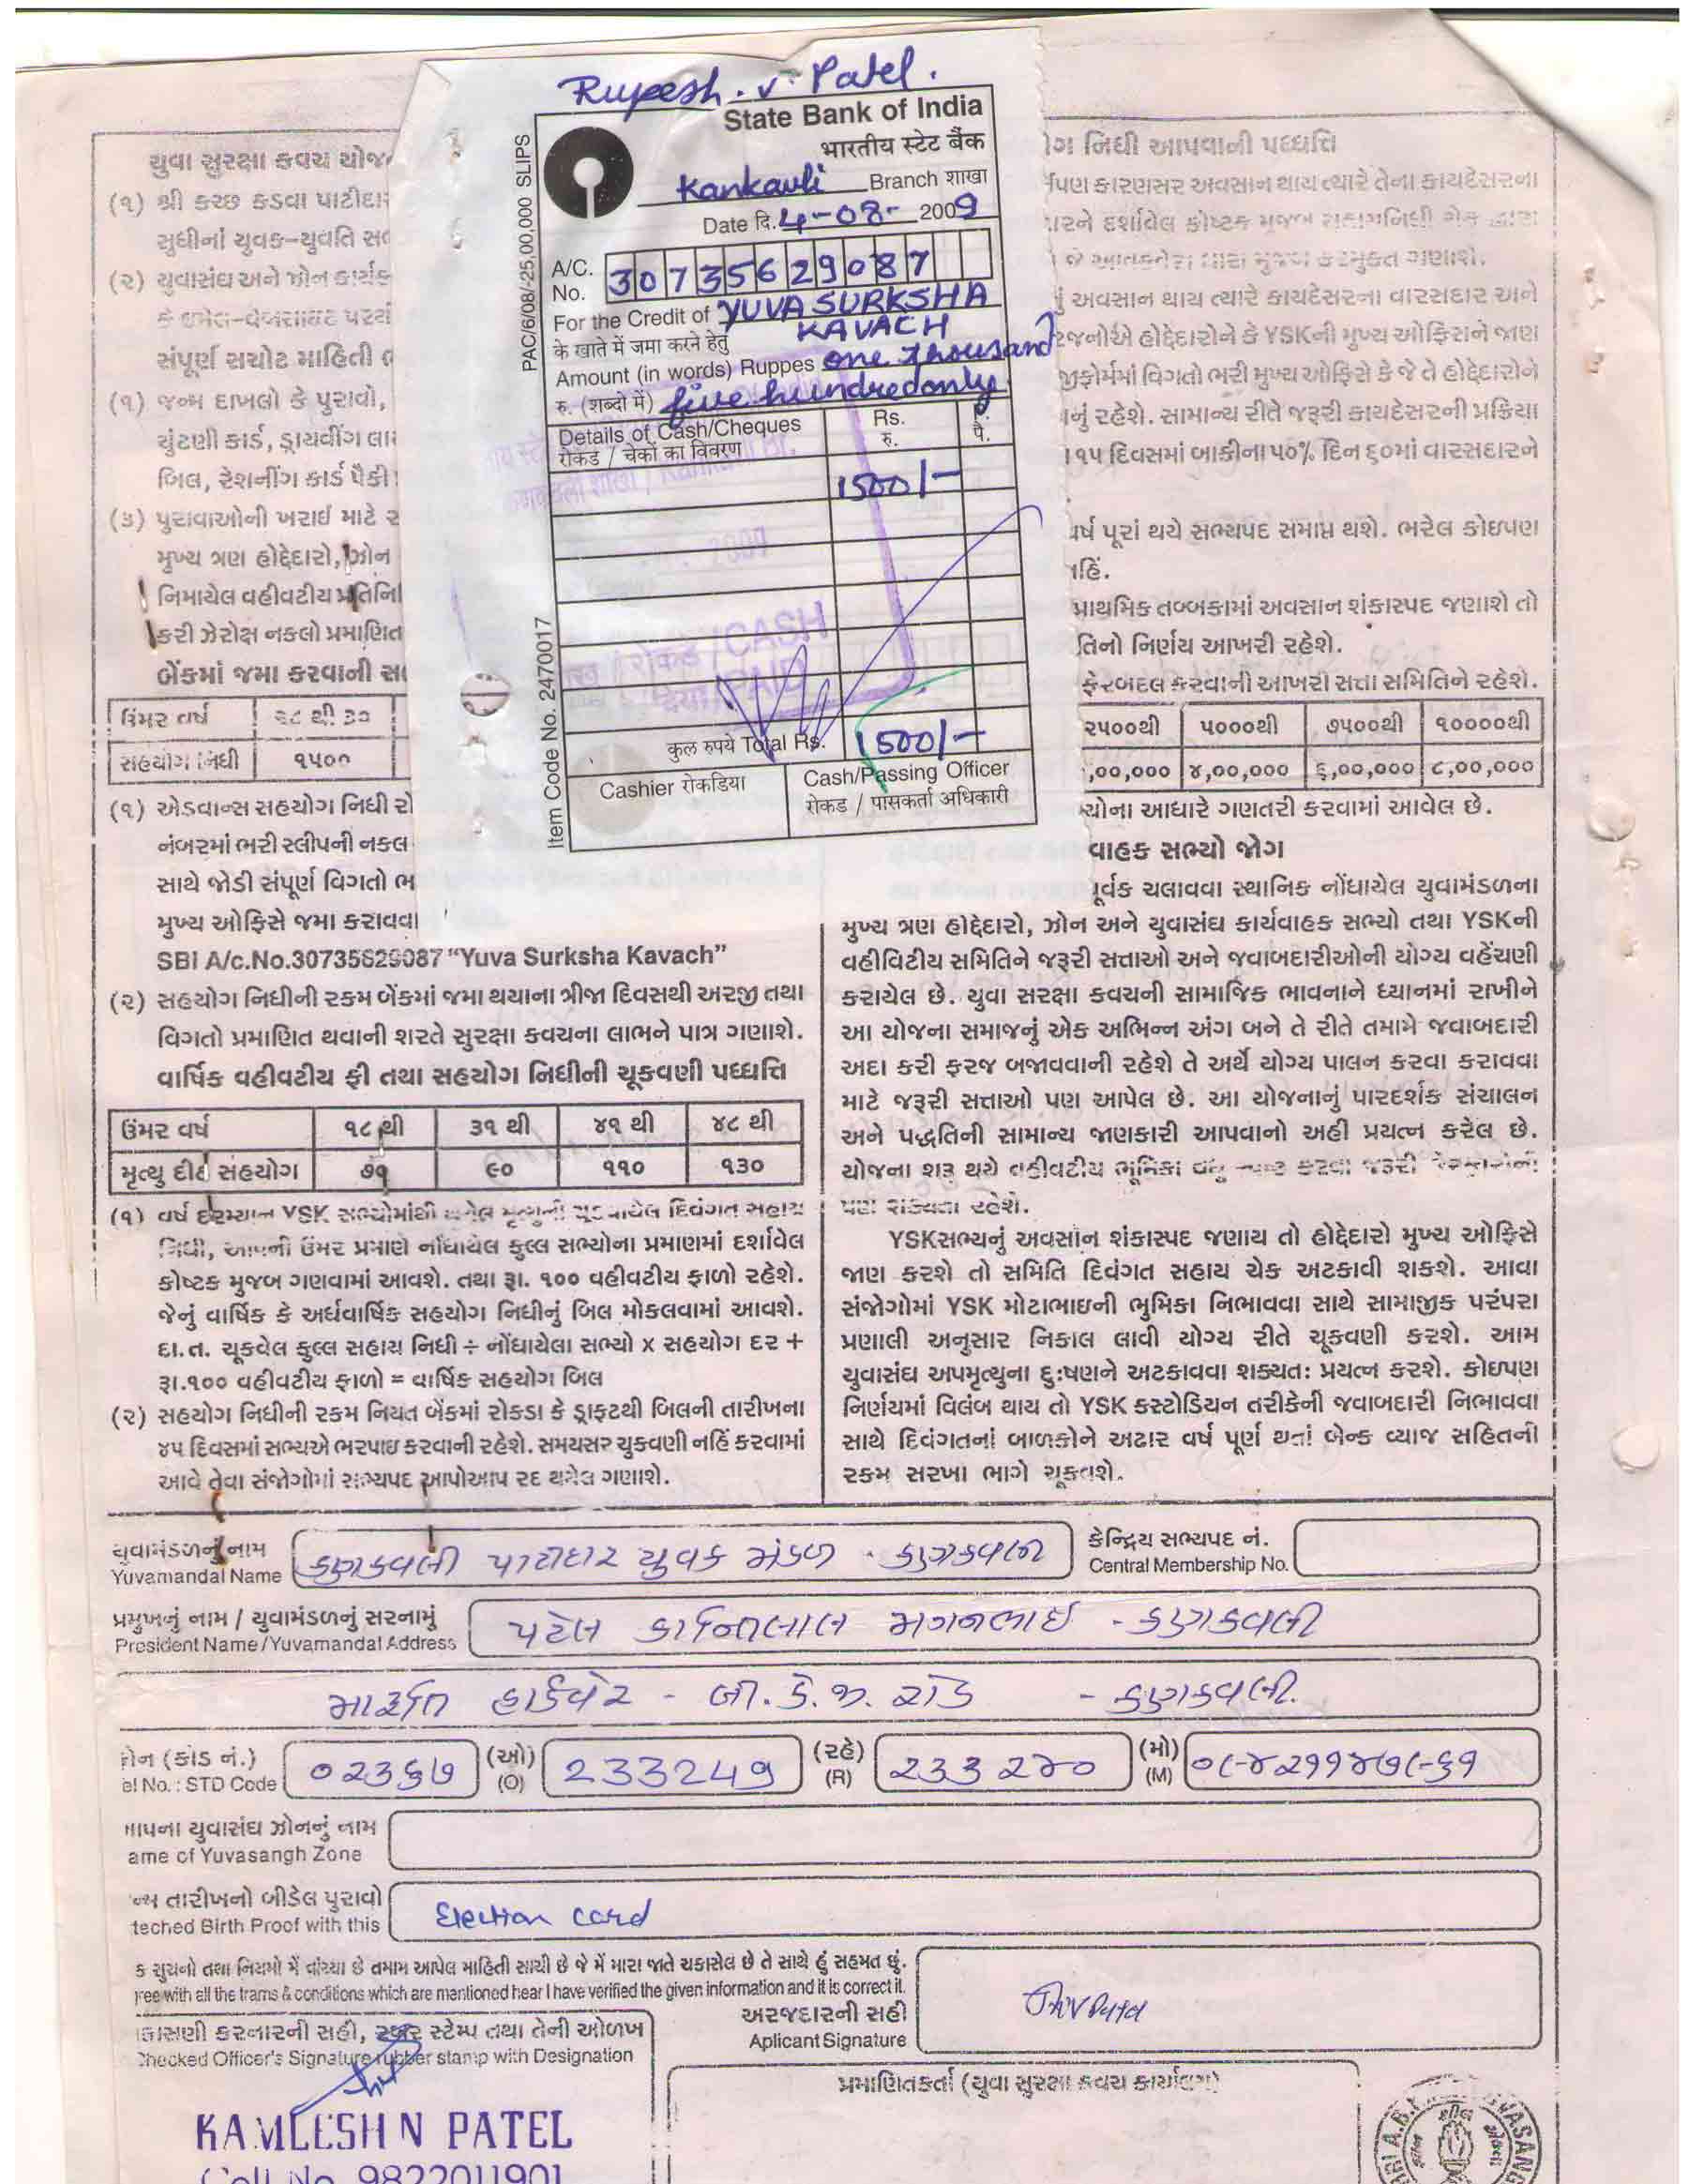 Rupesh. v. Patel.
State Bank of India
भारतीय स्टेट बैंक
Kankavli Branch शाखा
Date दि. 4-08- 2009
PAC/6/08/-25,00,000 SLIPS
A/C. No. 30735629087
For the Credit of YUVA SURKSHA
के खाते में जमा करने हेतु KAVACH
Amount (in words) Ruppes one thousand
रु. (शब्दो में) five hundred only
Details of Cash/Cheques Rs. P.
रोकड / चेकों का विवरण रु. पै.
1500/-
Item Code No. 2470017
कुल रुपये Total Rs. 1500/-
Cashier रोकडिया
Cash/Passing Officer
रोकड / पासकर्ता अधिकारी
યુવા સુરક્ષા કવચ યોજ
(૧) શ્રી કચ્છ કડવા પાટીદાર
સુધીનાં યુવક-યુવતિ સ
(૨) યુવાસંઘ અને ઝોન કાર્યક
કે ઇમેલ-વેબસાઇટ પરથ
સંપૂર્ણ સચોટ માહિતી ભ
(૧) જન્મ દાખલો કે પુરાવો,
ચુંટણી કાર્ડ, ડ્રાયવીંગ લા
બિલ, રેશનીંગ કાર્ડ પૈકી
(૩) પુરાવાઓની ખરાઇ માટે
મુખ્ય ત્રણ હોદ્દેદારો, ઝોન
નિમાયેલ વહીવટીય પ્રતિનિ
કરી ઝેરોક્ષ નકલો પ્રમાણિત
બેંકમાં જમા કરવાની સ
ઉંમર વર્ષ ૧૮ થી ૩૦
સહયોગ નિધી ૧૫૦૦
(૧) એડવાન્સ સહયોગ નિધી રો
નંબરમાં ભરી સ્લીપની નકલ
સાથે જોડી સંપૂર્ણ વિગતો ભ
મુખ્ય ઓફિસે જમા કરાવવા
SBI A/c.No.30735629087 “Yuva Surksha Kavach”
(૨) સહયોગ નિધીની રકમ બેંકમાં જમા થયાના ત્રીજા દિવસથી અરજી તથા
વિગતો પ્રમાણિત થવાની શરતે સુરક્ષા કવચના લાભને પાત્ર ગણાશે.
વાર્ષિક વહીવટીય ફી તથા સહયોગ નિધીની ચૂકવણી પધ્ધતિ
ઉંમર વર્ષ ૧૮ થી ૩૧ થી ૪૧ થી ૪૮ થી
મૃત્યુ દીઠ સહયોગ ૭૧ ૯૦ ૧૧૦ ૧૩૦
(૧) વર્ષ દરમ્યાન YSK સભ્યોમાંથી થયેલ મૃત્યુની ચૂકવાયેલ દિવંગત સહાય
નિધી, આપની ઉંમર પ્રમાણે નોંધાયેલ કુલ્લ સભ્યોના પ્રમાણમાં દર્શાવેલ
કોષ્ટક મુજબ ગણવામાં આવશે. તથા રૂા. ૧૦૦ વહીવટીય ફાળો રહેશે.
જેનું વાર્ષિક કે અર્ધવાર્ષિક સહયોગ નિધીનું બિલ મોકલવામાં આવશે.
દા.ત. ચૂકવેલ કુલ્લ સહાય નિધી ÷ નોંધાયેલા સભ્યો x સહયોગ દર +
રૂા.૧૦૦ વહીવટીય ફાળો = વાર્ષિક સહયોગ બિલ
(૨) સહયોગ નિધીની રકમ નિયત બેંકમાં રોકડા કે ડ્રાફટથી બિલની તારીખના
૪૫ દિવસમાં સભ્યએ ભરપાઇ કરવાની રહેશે. સમયસર ચુકવણી નહિં કરવામાં
આવે તેવા સંજોગોમાં સભ્યપદ આપોઆપ રદ થયેલ ગણાશે.
ોગ નિધી આપવાની પધ્ધતિ
ઈપણ કારણસર અવસાન થાય ત્યારે તેના કાયદેસરના
ારને દર્શાવેલ કોષ્ટક મુજબ સહાયનિધી ચેક દ્વારા
મુજબ કરમુક્ત ગણાશે.
નું અવસાન થાય ત્યારે કાયદેસરના વારસદાર અને
રજનોએ હોદ્દેદારોને કે YSKની મુખ્ય ઓફિસને જાણ
જીફોર્મમાં વિગતો ભરી મુખ્ય ઓફિસે કે જે તે હોદ્દેદારોને
નું રહેશે. સામાન્ય રીતે જરૂરી કાયદેસરની પ્રક્રિયા
૧૫ દિવસમાં બાકીના ૫૦% દિન ૬૦માં વારસદારને
વર્ષ પૂરાં થયે સભ્યપદ સમાપ્ત થશે. ભરેલ કોઇપણ
નહિં.
પ્રાથમિક તબ્બકામાં અવસાન શંકાસ્પદ જણાશે તો
તિનો નિર્ણય આખરી રહેશે.
ફેરબદલ કરવાની આખરી સત્તા સમિતિને રહેશે.
૨૫૦૦થી ૫૦૦૦થી ૭૫૦૦થી ૧૦૦૦૦થી
,૦૦,૦૦૦ ૪,૦૦,૦૦૦ ૬,૦૦,૦૦૦ ૮,૦૦,૦૦૦
્યોના આધારે ગણતરી કરવામાં આવેલ છે.
વાહક સભ્યો જોગ
પૂર્વક ચલાવવા સ્થાનિક નોંધાયેલ યુવામંડળના
મુખ્ય ત્રણ હોદ્દેદારો, ઝોન અને યુવાસંઘ કાર્યવાહક સભ્યો તથા YSKની
વહીવિટીય સમિતિને જરૂરી સત્તાઓ અને જવાબદારીઓની યોગ્ય વહેંચણી
કરાયેલ છે. યુવા સરક્ષા કવચની સામાજિક ભાવનાને ધ્યાનમાં રાખીને
આ યોજના સમાજનું એક અભિન્ન અંગ બને તે રીતે તમામે જવાબદારી
અદા કરી ફરજ બજાવવાની રહેશે તે અર્થે યોગ્ય પાલન કરવા કરાવવા
માટે જરૂરી સત્તાઓ પણ આપેલ છે. આ યોજનાનું પારદર્શક સંચાલન
અને પદ્ધતિની સામાન્ય જાણકારી આપવાનો અહી પ્રયત્ન કરેલ છે.
યોજના શરૂ થયે વહીવટીય ભૂમિકા વધુ સ્પષ્ટ કરવા જરૂરી ફેરફારોની
પણ શક્યતા રહેશે.
YSKસભ્યનું અવસાન શંકાસ્પદ જણાય તો હોદ્દેદારો મુખ્ય ઓફિસે
જાણ કરશે તો સમિતિ દિવંગત સહાય ચેક અટકાવી શકશે. આવા
સંજોગોમાં YSK મોટાભાઇની ભુમિકા નિભાવવા સાથે સામાજીક પરંપરા
પ્રણાલી અનુસાર નિકાલ લાવી યોગ્ય રીતે ચૂકવણી કરશે. આમ
યુવાસંઘ અપમૃત્યુના દુઃષણને અટકાવવા શક્યતઃ પ્રયત્ન કરશે. કોઇપણ
નિર્ણયમાં વિલંબ થાય તો YSK કસ્ટોડિયન તરીકેની જવાબદારી નિભાવવા
સાથે દિવંગતનાં બાળકોને અઢાર વર્ષ પૂર્ણ થતાં બેન્ક વ્યાજ સહિતની
રકમ સરખા ભાગે ચૂકવશે.
યુવામંડળનું નામ કણકવલી પાટીદાર યુવક મંડળ - કણકવલી
Yuvamandal Name
કેન્દ્રિય સભ્યપદ નં.
Central Membership No.
પ્રમુખનું નામ / યુવામંડળનું સરનામું પટેલ કાન્તિલાલ મગનભાઇ - કણકવલી
President Name/Yuvamandal Address
મારૂતિ હાર્ડવેર - બી.કે.જી. રોડ - કણકવલી.
ફોન (કોડ નં.) ૦૨૩૬૭ (ઓ) 233249 (રહે) ૨૩૩૨૪૦ (મો) ૦૯૪૨૧૧૪૭૯૬૧
el No. : STD Code (O) (R) (M)
આપના યુવાસંઘ ઝોનનું નામ
ame of Yuvasangh Zone
ન્મ તારીખનો બીડેલ પુરાવો Election card
teched Birth Proof with this
ક સુચનો તથા નિયમો મેં વાંચ્યા છે તમામ આપેલ માહિતી સાચી છે જે મેં મારા જાતે ચકાસેલ છે તે સાથે હું સહમત છું.
ree with all the trams & conditions which are mentioned hear I have verified the given information and it is correct it.
અરજદારની સહી
Aplicant Signature
કાસણી કરનારની સહી, રબર સ્ટેમ્પ તથા તેની ઓળખ
Checked Officer's Signature rubber stamp with Designation
પ્રમાણિતકર્તા (યુવા સુરક્ષા કવચ કાર્યાલય)
KAMLESH N PATEL
Cell No. 9822011901